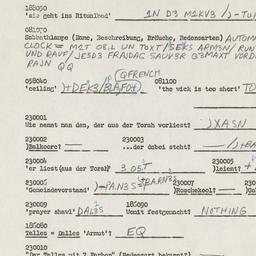 188050
'wie geht ins Ritualbad' 1N D3 M1KV3 /)-TU
081070
Sabbathlampe (Name, Beschreibung, Brüche, Redensarten) AUTOM
CLOCK = M1T O8.L UN TOXT /SEKS ARM3N/ RUN
UND RAUF/ JESD3 FRAJDAC SAUV3R G3MAXT VORD
RAJN QQ
QFRENCH
058040 081100
'ceiling' )+DEK3/BLAFO+) 'the wick is too short' TO
230001
Wie nennt man den, der aus der Torah vorliest? )XASN
230002 230003
)Balkoore? —— ...der dabei steht? —— /)+BA
230004 230005
'er liest (aus der Torah)' 3 O5T )leient? +
230006 230007 230
'Gemeindevorstand' )-PAN3S+BARN3S )Roschekool? — )Ga
230009 185090
'prayer shawl' DAL3S Womit festgemacht? NOTHING
185080
Talles = Dalles 'Armut'? EQ
230010
"Der Talles mit 7 Farben" (Redensart bekannt?)